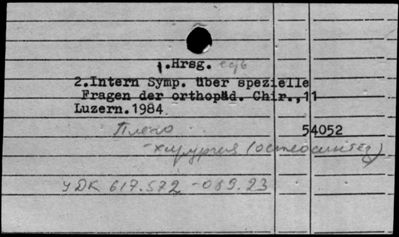 1.Hrsg.
2.Intern Symp. über spezielle
Fragen der orthopäd. Chir.,11
Luzern.1984
Плечо 54052
-хирургия (остеосинтез)
УДК 617.572-089.23